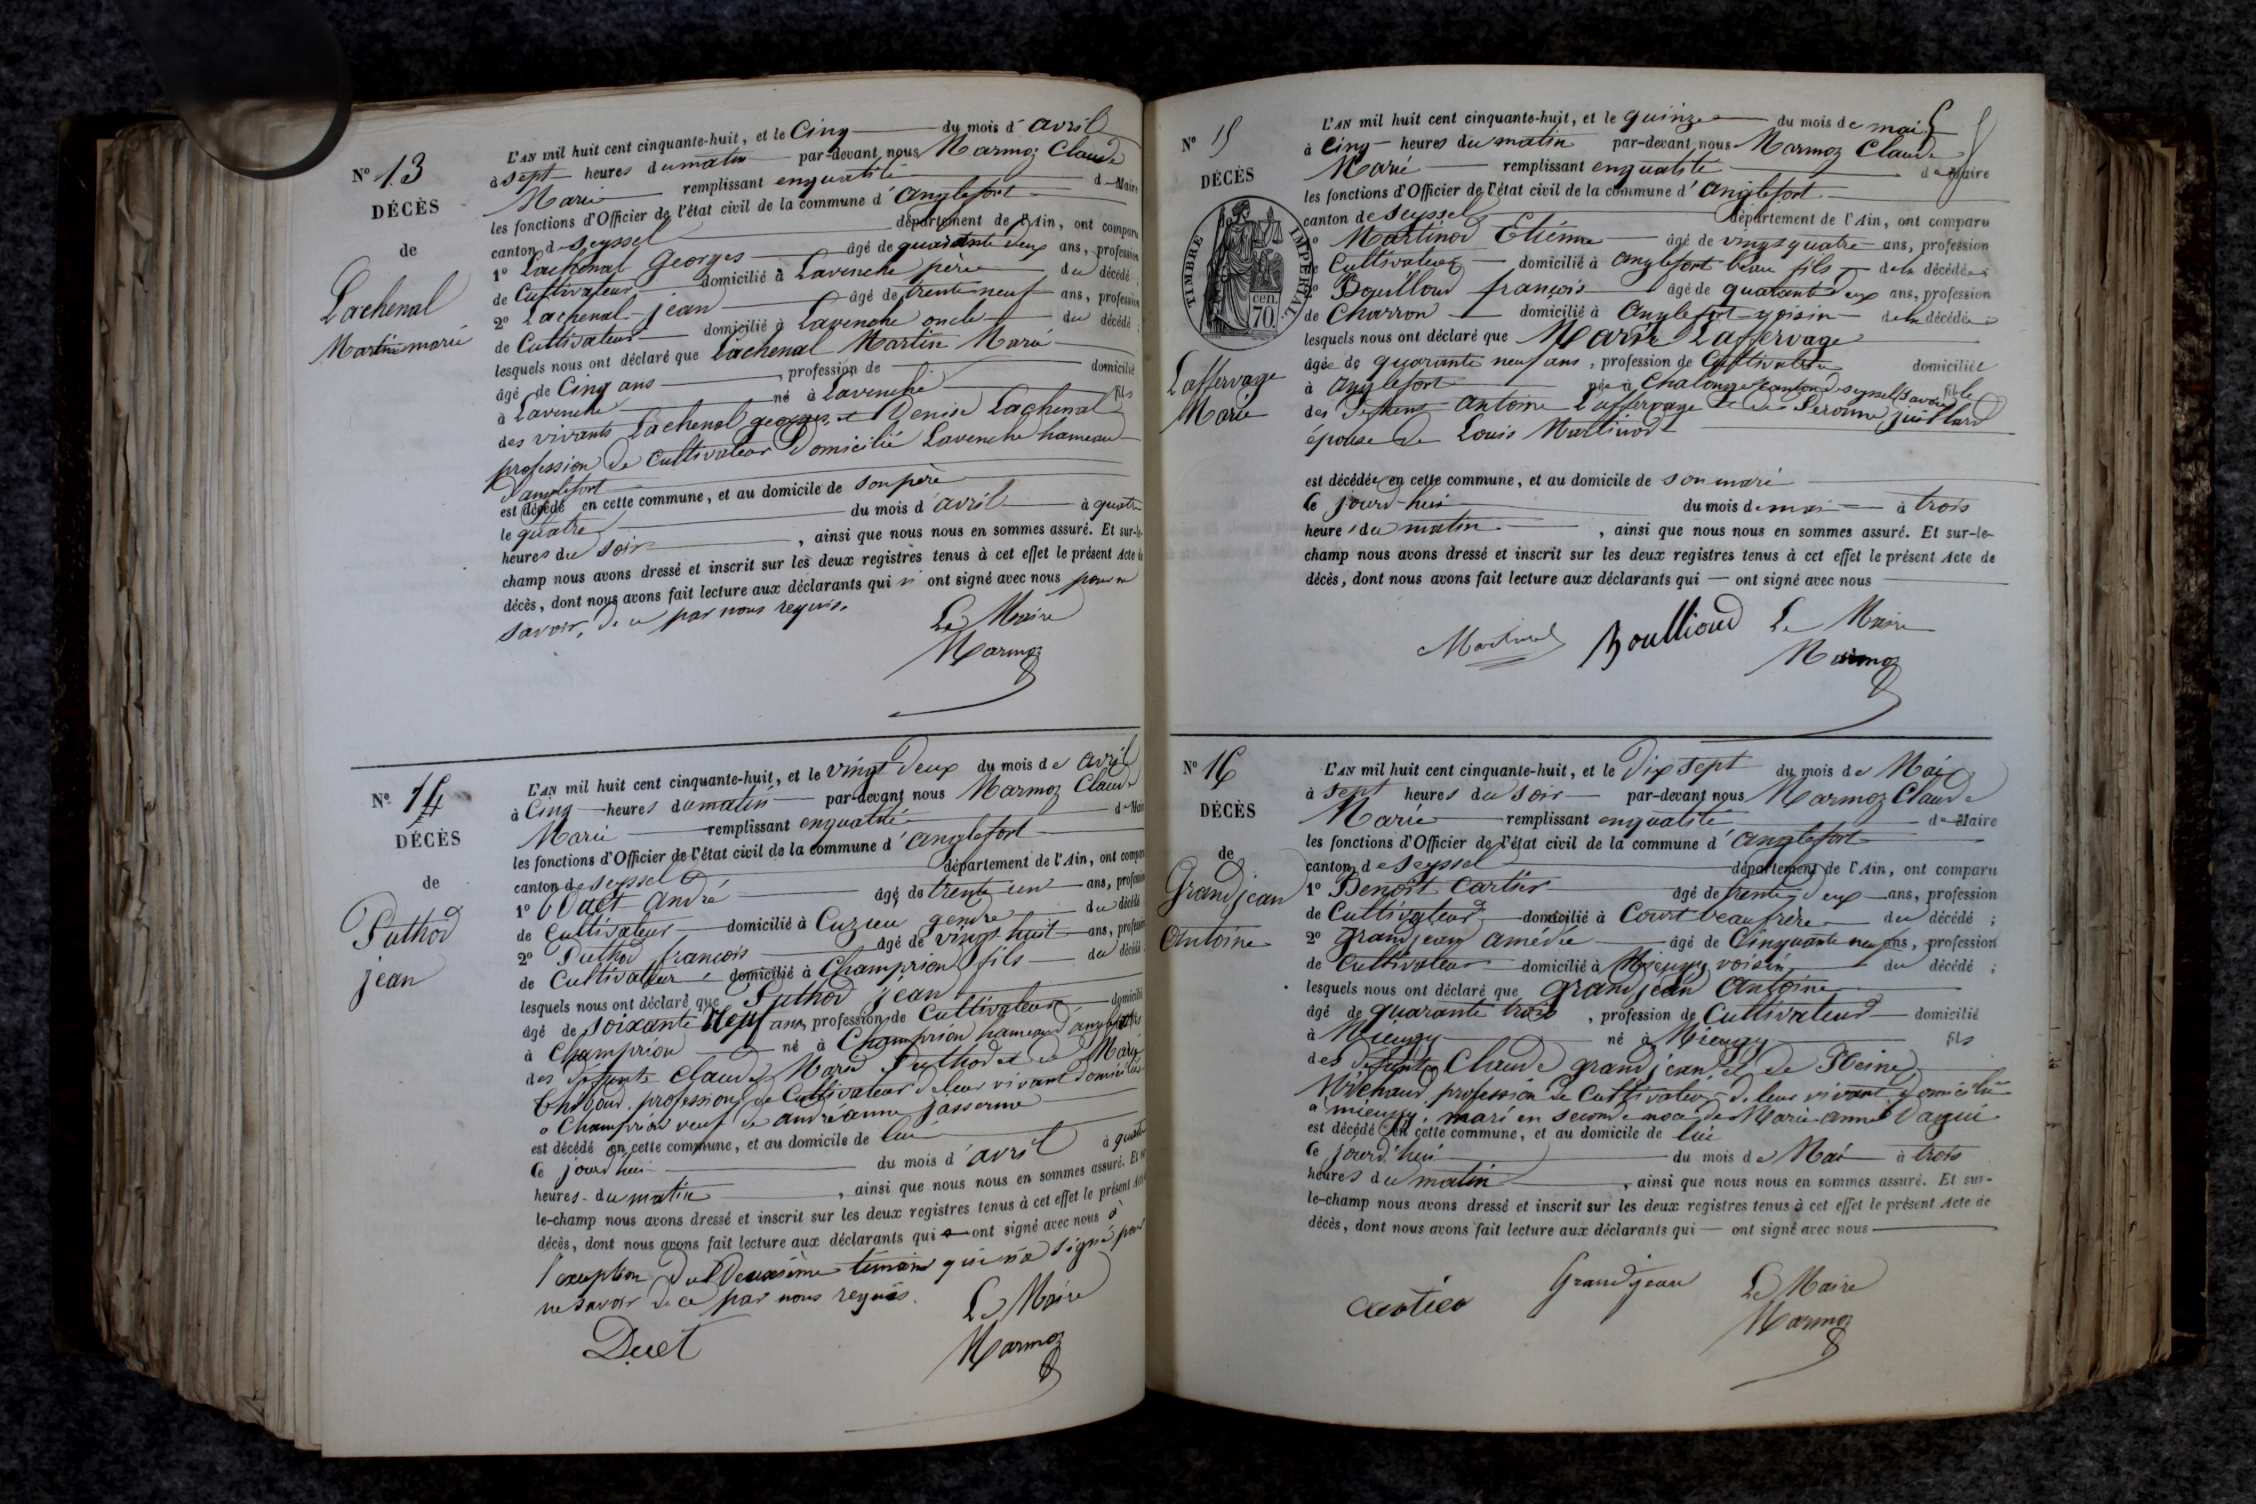 N° 13
DÉCÈS
de
Lachenal
Martin marie
L'AN mil huit cent cinquante-huit, et le Cinq du mois d'avril
à sept heures du matin par-devant nous Marmoz Claude
Marie remplissant en qualité de Maire
les fonctions d'Officier de l'état civil de la commune d'anglefort
canton de Seyssel département de l'Ain, ont comparu
1° Lachenal Georges âgé de quarante deux ans, profession
de Cultivateur domicilié à Lavenche père du décédé ;
2° Lachenal jean âgé de trente neuf ans, profession
de Cultivateur domicilié à Lavenche oncle du décédé ;
lesquels nous ont déclaré que Lachenal Martin Marie
âgé de Cinq ans , profession de domicilié
à Lavenche né à Lavenche fils
des vivants Lachenal georges, et Denise Lachenal
profession de Cultivateur Domicilié Lavenche hameau
d'anglefort
est décédé en cette commune, et au domicile de son père
le quatre du mois d'avril à quatre
heures du soir , ainsi que nous nous en sommes assuré. Et sur-le-
champ nous avons dressé et inscrit sur les deux registres tenus à cet effet le présent Acte de
décès, dont nous avons fait lecture aux déclarants qui n'ont signé avec nous pour ne
savoir, de ce par nous requis.
Le Maire
Marmoz
N° 14
DÉCÈS
de
Puthod
jean
L'AN mil huit cent cinquante-huit, et le vingt deux du mois de avril
à Cinq heures du matin par-devant nous Marmoz Claude
Marie remplissant en qualité de Maire
les fonctions d'Officier de l'état civil de la commune d'anglefort
canton de Seyssel département de l'Ain, ont comparu
1° Duet André âgé de trente un ans, profession
de Cultivateur domicilié à Cuzieu gendre du décédé
2° Puthod françois âgé de vingt huit ans, profession
de Cultivateur domicilié à Champrion fils du décédé
lesquels nous ont déclaré que Puthod jean
âgé de soixante Neuf ans, profession de Cultivateur domicilié
à Champrion né à Champrion hameau d'anglefort fils
des défunts Claude Marie Puthod et de Marie
profession de Cultivateur de leur vivant domiciliés
a Champrion veuf de andréanne jasserme
est décédé en cette commune, et au domicile de lui
Ce jourd'hui du mois d'avril à quatre
heures du matin , ainsi que nous nous en sommes assuré. Et sur-
le-champ nous avons dressé et inscrit sur les deux registres tenus à cet effet le présent Acte
décès, dont nous avons fait lecture aux déclarants qui ont signé avec nous à
l'exception du Deuxième témoin qui n'a signé pour
ne savoir de ce par nous requis.
Le Maire
Duet Marmoz
N° 15
DÉCÈS
TIMBRE IMPÉRIAL
cen.
70
Laffervage
Marie
L'AN mil huit cent cinquante-huit, et le quinze du mois de mai
à Cinq heures du matin par-devant nous Marmoz Claude
Marie remplissant en qualité de Maire
les fonctions d'Officier de l'état civil de la commune d'anglefort
canton de Seyssel département de l'Ain, ont comparu
1° Martinod Etienne âgé de vingt quatre ans, profession
de Cultivateur domicilié à anglefort beau fils de la décédée ;
2° Bouilloud françois âgé de quarante deux ans, profession
de Charron domicilié à Anglefort voisin de la décédée ;
lesquels nous ont déclaré que Marie Laffervage
âgée de quarante neuf ans, profession de Cultivatrice domiciliée
à anglefort née à Chalonge canton de seyssel Savoie fille
des défunts Antoine Laffervage et de Peronne juillard
épouse de Louis Martinod
est décédée en cette commune, et au domicile de son mari
Ce jourd'hui du mois de mai à trois
heures du matin , ainsi que nous nous en sommes assuré. Et sur-le-
champ nous avons dressé et inscrit sur les deux registres tenus à cet effet le présent Acte de
décès, dont nous avons fait lecture aux déclarants qui ont signé avec nous
Martinod Boullioud Le Maire
Marmoz
N° 16
DÉCÈS
de
Grandjean
Antoine
L'AN mil huit cent cinquante-huit, et le Dix sept du mois de Mai
à sept heures du soir par-devant nous Marmoz Claude
Marie remplissant en qualité de Maire
les fonctions d'Officier de l'état civil de la commune d'anglefort
canton de Seyssel département de l'Ain, ont comparu
1° Benoit Cartier âgé de trente deux ans, profession
de Cultivateur domicilié à Court beau frère du décédé ;
2° grandjean amédée âgé de Cinquante neuf ans, profession
de Cultivateur domicilié à Mieugy voisin du décédé ;
lesquels nous ont déclaré que grandjean Antoine
âgé de quarante trois , profession de Cultivateur domicilié
à Mieugy né à Mieugy fils
des défunts Claude grandjean et de Reine
Michaud profession de Cultivateur de leur vivant domiciliés
a mieugy, marié en seconde noce de Marie anne
est décédé en cette commune, et au domicile de lui
Ce jourd'hui du mois de Mai à trois
heures du matin , ainsi que nous nous en sommes assuré. Et sur-
le-champ nous avons dressé et inscrit sur les deux registres tenus à cet effet le présent Acte de
décès, dont nous avons fait lecture aux déclarants qui ont signé avec nous
Cartier Grandjean Le Maire
Marmoz